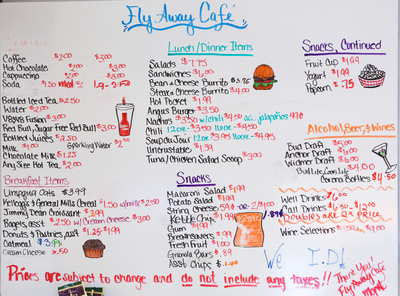 Fly Away Café
Coffee $2.00 $3.00
Hot Chocolate $2.00 $3.00
Cappuccino $2.00 $3.00
Soda
Bottled Iced Tea $2.50
Water $2.00
V8 Fusion $3.00
Red Bull, Sugar Free Red Bull $3.00
Bottled Juices $2.30
Milk
Sparkling Water
Chocolate Milk $1.25
Any Size Hot Tea $2.00
Breakfast Items
Umpqua Oats $3.99
Kellogg's & General Mills Cereal
Jimmy Dean Croissant $2.99
Bagels, asst w/ Cream Cheese $3.00
Donuts & Pastries, asst $1.25-$1.99
Oatmeal
Cream Cheese $.50
Lunch/Dinner Items
Salads $7.75
Sandwiches $6.00
Bean & Cheese Burrito $3.75
Steak & Cheese Burrito $4.00
Hot Pocket $1.99
Angus Burger $3.50
Nachos $3.50 w/chili $4.50 add jalapeños
Chili 12oz-$3.50 16oz-$4.50
Soup du Jour 12oz $3.95 16oz-$4.95
Uncrustable $1.39
Tuna/Chicken Salad Scoop $3.00
Snacks
Macaroni Salad $1.99
Potato Salad $1.99
String Cheese
Kettle Chips $1.99
Gum $1.99
Breathsavers $1.99
Fresh Fruit $1.00
Granola Bars $.89
Asst Chips $1.00
Snacks, Continued
Fruit Cup $1.99
Yogurt $1.99
Popcorn $.75
Alcohol, Beer, & Wines
Bud Draft $5.00
Anchor Draft $6.00
Widmer Draft $6.00
Bud Lite, Coors Lite $4.00
Corona Bottles $4.50
Well Drinks $6.00
Call Drinks $6.50-$7.00
Doubles are 2x Price
Wine Selections
We I.D.
Prices are subject to change and do not include any taxes!!
Thank You!
Fly Away Café